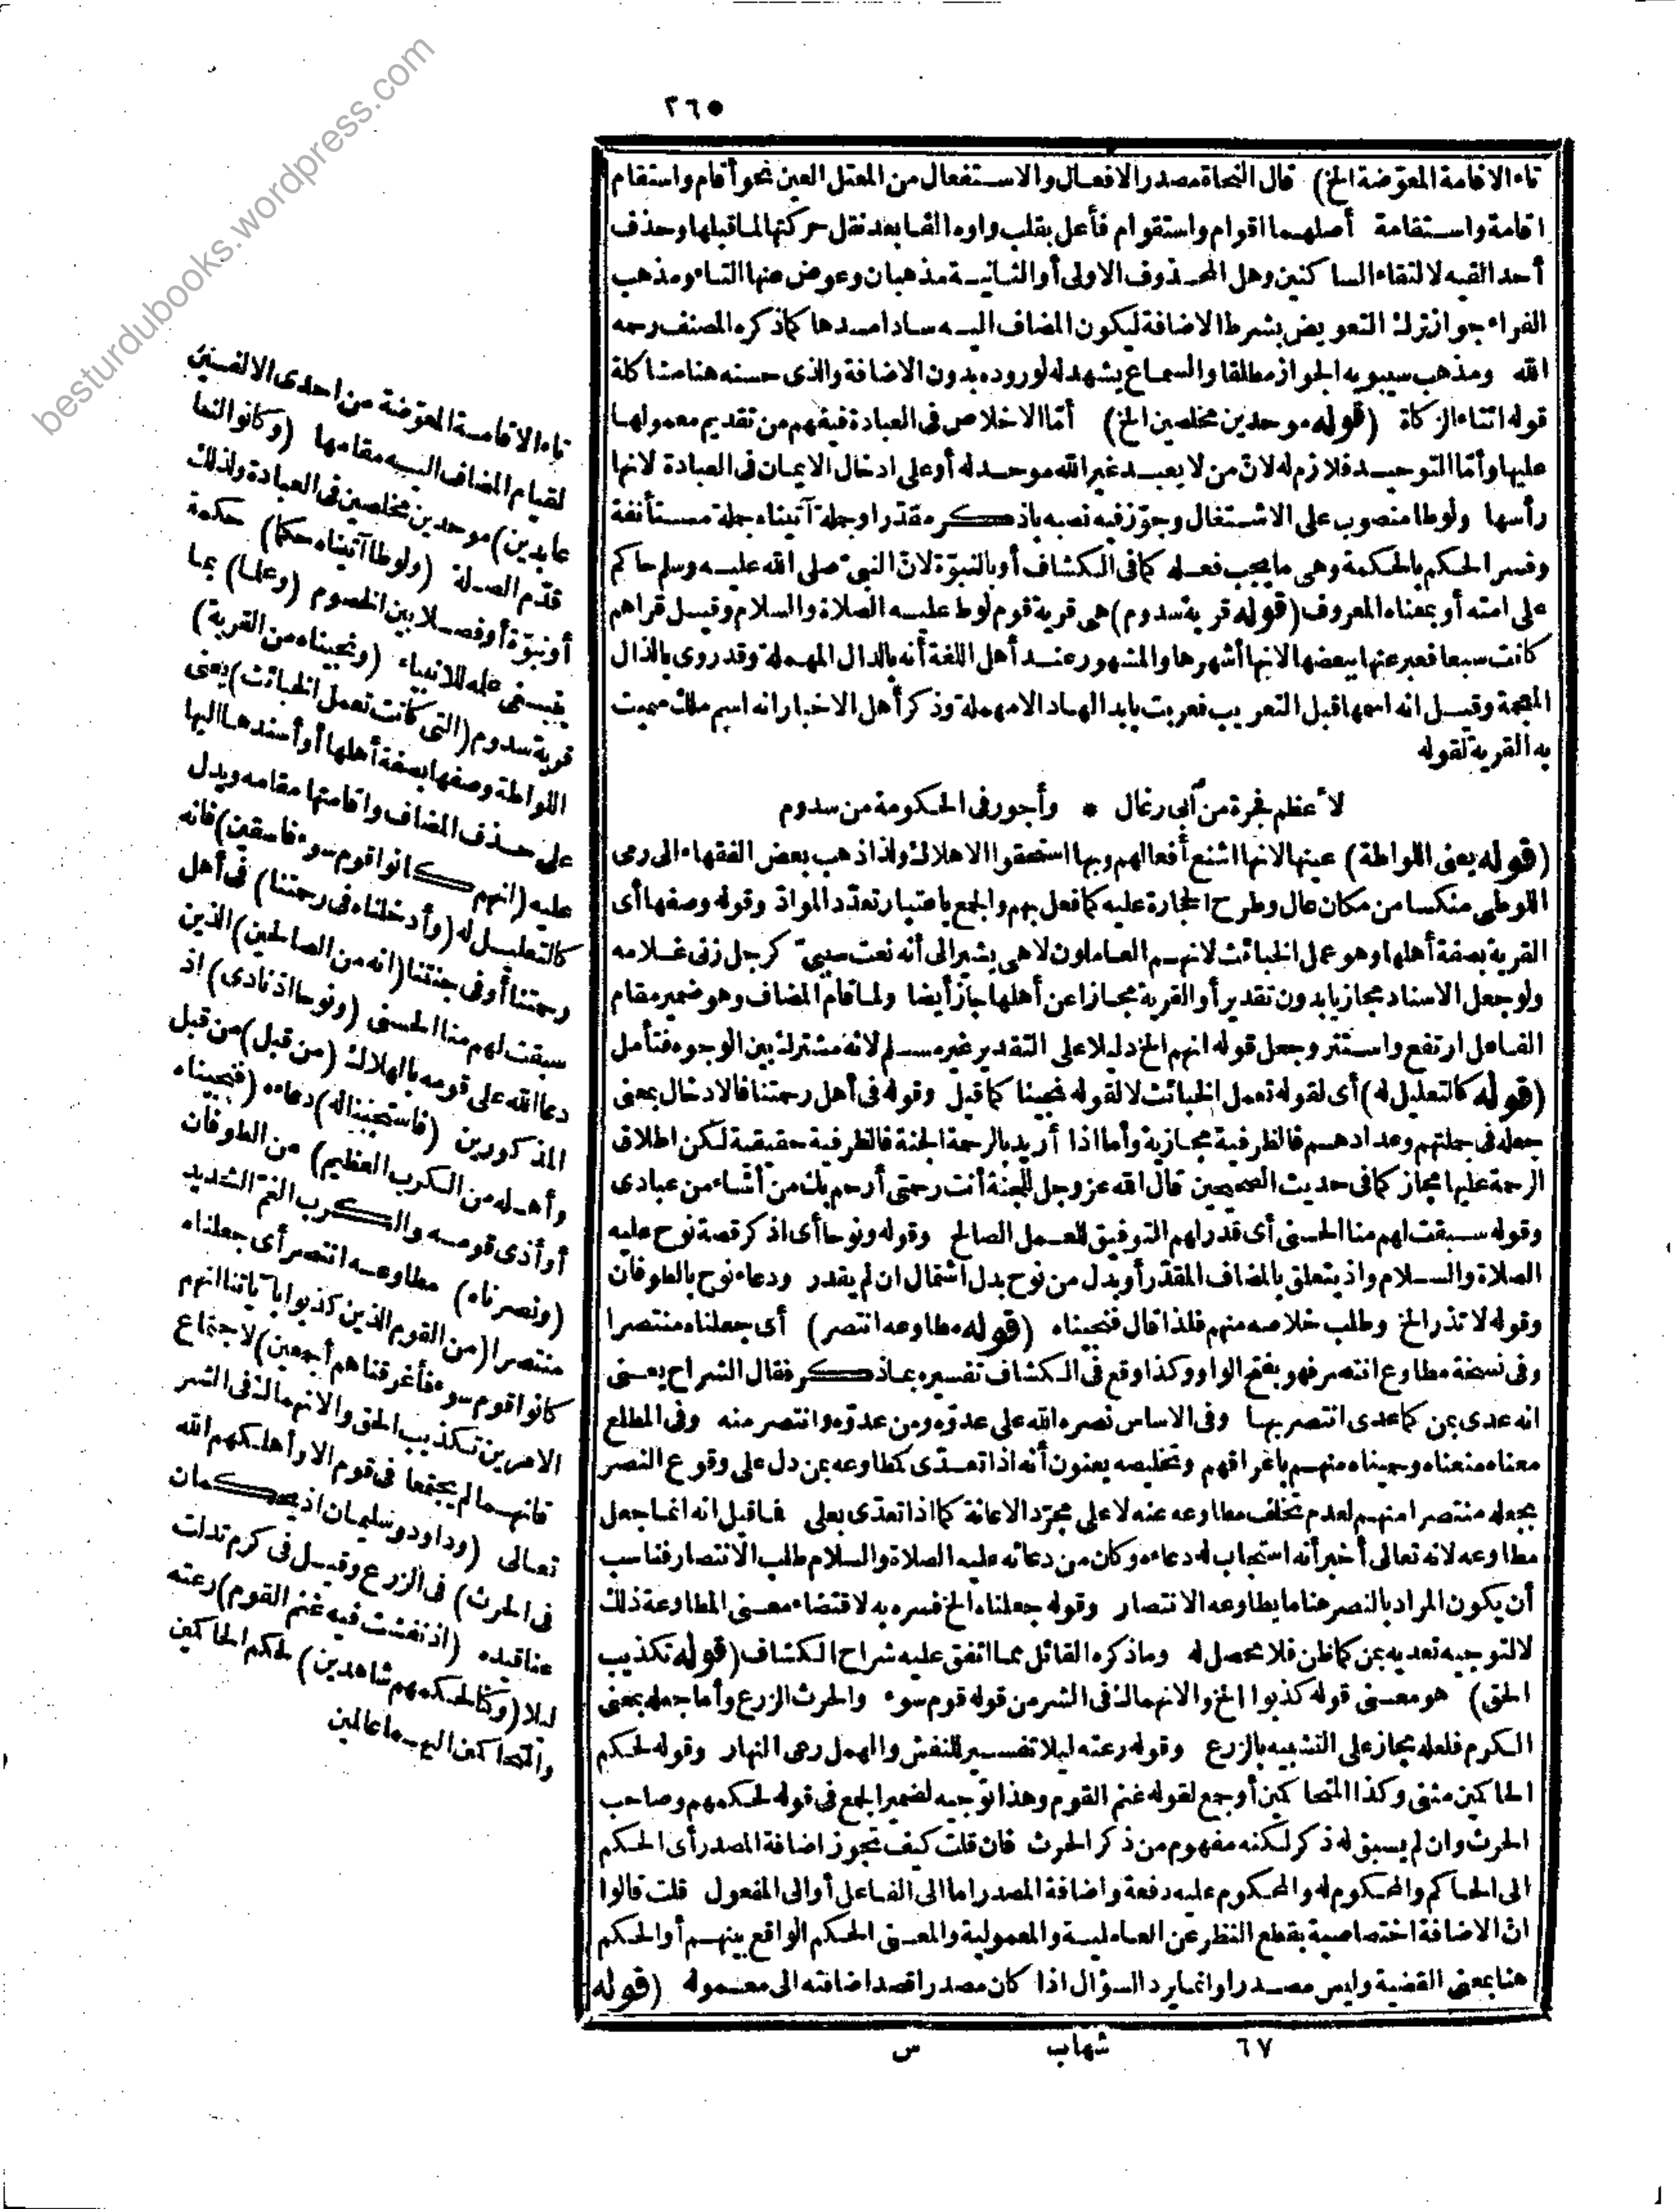 ٢٦٥
تاء الاقامة المعوّضة الخ) قال النحاة مصدر الافعال والاستفعال من المعتل العين نحو أقام واستقام
اقامة واستقامة أصلهما اقوام واستقوام فأعل بقلب واوه ألفا بعد نقل حركتها لما قبلها وحذف
أحد ألفيه لالتقاء الساكنين وهل المحذوف الاولى أو الثانية مذهبان وعوض عنها التاء ومذهب
الفراء جواز ترك التعويض بشرط الاضافة ليكون المضاف اليه سادا مسدها كما ذكره المصنف رحمه
الله ومذهب سيبويه الجواز مطلقا والسماع يشهد له لوروده بدون الاضافة والذى حسنه هنا مشاكلة
قوله ايتاء الزكاة (قوله موحدين مخلصين الخ) أمّا الاخلاص فى العبادة فيفهم من تقديم معمولها
عليها وأمّا التوحيد فلازم له لانّ من لا يعبد غير الله موحد له أو على ادخال الايمان فى العبادة لانها
رأسها ولوطا منصوب على الاشتغال وجوّز فيه نصبه باذكر مقدّرا وجملة آتيناه جملة مستأنفة
وفسر الحكم بالحكمة وهى ما يجب فعله كما فى الكشاف أو بالنبوّة لانّ النبىّ صلى الله عليه وسلم حاكم
على امته أو بمعناه المعروف (قوله قرية سدوم) هى قرية قوم لوط عليه الصلاة والسلام وقيل قراهم
كانت سبعا فعبر عنها ببعضها لانها أشهرها والمشهور عند أهل اللغة أنه بالدال المهملة وقد روى بالذال
المعجمة وقيل انه اسمها قبل التعريب فعربت بابدالها دالا مهملة وذكر أهل الاخبار انه اسم ملك سميت
به القرية لقوله
لأعظم فجرة من أبى رغال * وأجور فى الحكومة من سدوم
(قوله يعنى اللواطة) عينها لانها اشنع أفعالهم وبها استحقوا الاهلاك ولذا ذهب بعض الفقهاء الى رمى
اللوطى منكسا من مكان عال وطرح الحجارة عليه كما فعل بهم والجمع باعتبار تعدّد الموادّ وقوله وصفها أى
القرية بصفة أهلها وهو عمل الخبائث لانهم العاملون لا هى يشير الى أنه نعت سببىّ كرجل زنى غلامه
ولو جعل الاسناد مجازيا بدون تقدير أو القرية مجازا عن أهلها جاز أيضا ولما قام المضاف وهو ضمير مقام
الفاعل ارتفع واستتر وجعل قوله انهم الخ دليلا على التقدير غير مسلم لانه مشترك بين الوجوه فتأمل
(قوله كالتعليل له) أى لقوله تعمل الخبائث لا لقوله نجينا كما قيل وقوله فى أهل رحمتنا فالادخال بمعنى
جعله فى جملتهم وعدادهم فالظرفية مجازية وأما اذا أريد بالرحمة الجنة فالظرفية حقيقية لكن اطلاق
الرحمة عليها مجاز كما فى حديث الصحيحين قال الله عز وجل للجنة أنت رحمتى أرحم بك من أشاء من عبادى
وقوله سبقت لهم منا الحسنى أى قدّر لهم التوفيق للعمل الصالح وقوله ونوحا أى اذكر قصة نوح عليه
الصلاة والسلام واذ يتعلق بالمضاف المقدّر أو بدل من نوح بدل اشتمال ان لم يقدر ودعاء نوح بالطوفان
وقوله لا تذر الخ وطلب خلاصه منهم فلذا قال فنجيناه (قوله مطاوعه انتصر) أى جعلناه منتصرا
وفى نسخة مطاوع انتصر فهو بفتح الواو وكذا وقع فى الكشاف تفسيره بما ذكر فقال الشراح يعنى
انه عدى بمن كما عدى انتصر بها وفى الاساس نصره الله على عدوّه ومن عدوّه وانتصر منه وفى المطلع
معناه منعناه وحميناه منهم باغراقهم وتخليصه يعنون أنه اذا تعدّى كمطاوعه بمن دل على وقوع النصر
بجعله منتصرا منهم لعدم تخلف مطاوعه عنه لا على مجرّد الاعانة كما اذا تعدّى بعلى فما قيل انه انما جعل
مطاوعه لانه تعالى أخبر أنه استجاب له دعاءه وكان من دعائه عليه الصلاة والسلام طلب الانتصار فناسب
أن يكون المراد بالنصر هنا ما يطاوعه الانتصار وقوله جعلناه الخ فسره به لاقتضاء معنى المطاوعة ذلك
لا لتوجيه تعديه بمن كما ظن فلا محصل له وما ذكره القائل مما اتفق عليه شراح الكشاف (قوله تكذيب
الحق) هو معنى قوله كذبوا الخ والانهماك فى الشر من قوله قوم سوء والحرث الزرع وأما جعله بمعنى
الكرم فلعله مجاز على التشبيه بالزرع وقوله رعته ليلا تفسير للنفش والهمل رعى النهار وقوله لحكم
الحاكمين مثنى وكذا المتحاكمين أو جمع لقوله غنم القوم وهذا توجيه لضمير الجمع فى قوله لحكمهم وصاحب
الحرث وان لم يسبق له ذكر لكنه مفهوم من ذكر الحرث فان قلت كيف تجوز اضافة المصدر أى الحكم
الى الحاكم والمحكوم له والمحكوم عليه دفعة واضافة المصدر اما الى الفاعل أو الى المفعول قلت قالوا
انّ الاضافة اختصاصية بقطع النظر عن العاملية والمعمولية والمعنى الحكم الواقع بينهم أو الحكم
هنا بمعنى القضية وليس مصدرا وانما يرد السؤال اذا كان مصدرا قصد اضافته الى معموله (قوله
٦٧ شهاب س
تاء الاقامة المعوّضة من احدى الالفين
لقيام المضاف اليه مقامها (وكانوا لنا
عابدين) موحدين مخلصين فى العبادة ولذلك
قدّم الصلة (ولوطا آتيناه حكما) حكمة
أو نبوّة أو فصلا بين الخصوم (وعلما) بما
ينبغى علمه للانبياء (ونجيناه من القرية)
قرية سدوم (التى كانت تعمل الخبائث) يعنى
اللواطة وصفها بصفة أهلها أو أسندها اليها
على حذف المضاف واقامتها مقامه ويدل
عليه (انهم كانوا قوم سوء فاسقين) فانه
كالتعليل له (وأدخلناه فى رحمتنا) فى أهل
رحمتنا أو فى جنتنا (انه من الصالحين) الذين
سبقت لهم منا الحسنى (ونوحا اذ نادى) اذ
دعا الله على قومه بالهلاك (من قبل) من قبل
المذكورين (فاستجبنا له) دعاءه (فنجيناه
وأهله من الكرب العظيم) من الطوفان
أو أذى قومه والكرب الغمّ الشديد
(ونصرناه) مطاوعه انتصر أى جعلناه
منتصرا (من القوم الذين كذبوا بآياتنا انهم
كانوا قوم سوء فأغرقناهم أجمعين) لاجتماع
الامرين تكذيب الحق والانهماك فى الشر
فانهما لم يجتمعا فى قوم الا وأهلكهم الله
تعالى (وداود وسليمان اذ يحكمان
فى الحرث) فى الزرع وقيل فى كرم تدلت
عناقيده (اذ نفشت فيه غنم القوم) رعته
ليلا (وكنا لحكمهم شاهدين) لحكم الحاكمين
والمتحاكمين اليهما عالمين
besturdubooks.wordpress.com